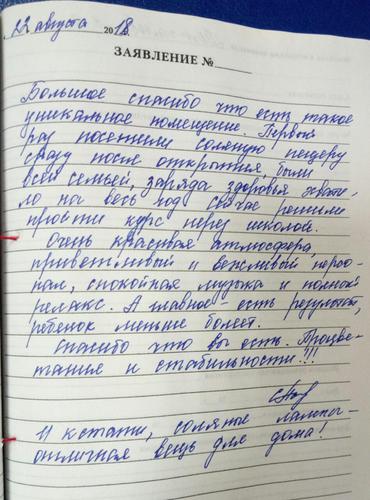 22 августа 2018
ЗАЯВЛЕНИЕ №
Большое спасибо что есть такое
уникальное помещение. Первый
раз посетили соляную пещеру
сразу после открытия, были
всей семьей, заряда здоровья хвати-
ло на весь год сейчас решили
пройти курс перед школой.
Очень красивая атмосфера,
приветливый и вежливый персо-
нал, спокойная музыка и полный
релакс. А главное есть результат,
ребенок меньше болеет.
Спасибо что вы есть. Процве-
тания и стабильности!!!
И кстати, соляные лампы-
отличная вещь для дома!